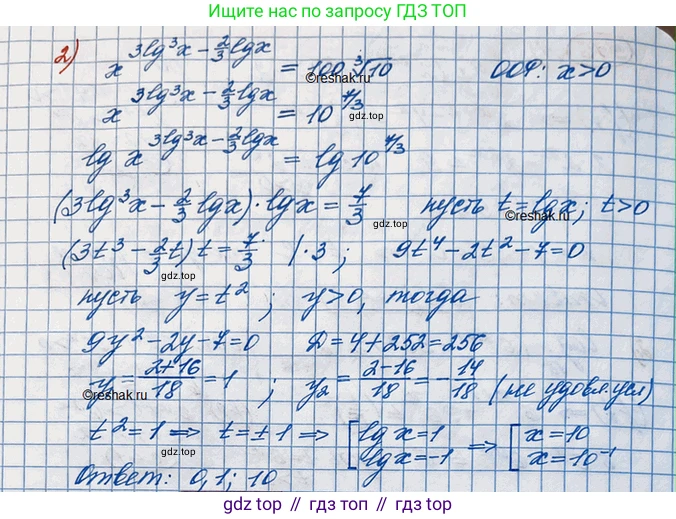 Ищите нас по запросу ГДЗ ТОП
2) x^(3lg³x - 2/3 lgx) = 100 ∛10 ООФ: x>0
©reshak.ru
x^(3lg³x - 2/3 lgx) = 10^(7/3)
gdz.top gdz.top
lg x^(3lg³x - 2/3 lgx) = lg 10^(7/3)
(3lg³x - 2/3 lgx) · lgx = 7/3 пусть t = lgx; t>0
gdz.top ©reshak.ru
(3t³ - 2/3 t) t = 7/3 |·3; 9t⁴ - 2t² - 7 = 0
gdz.top
пусть y = t²; y>0, тогда
9y² - 2y - 7 = 0 D = 4 + 252 = 256
gdz.top
y = (2+16)/18 = 1; y₂ = (2-16)/18 = -14/18 (не удовл. усл)
©reshak.ru gdz.top
t² = 1 ⇒ t = ±1 ⇒ [lg x = 1 lg x = -1 ⇒ [x = 10 x = 10⁻¹
©reshak.ru
Ответ: 0,1; 10
gdz.top
gdz.top // гдз.топ // gdz.top